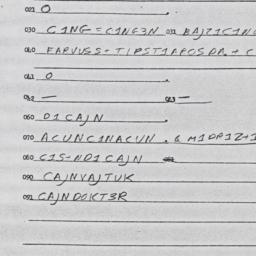 021 O
030 C1NG = C1NG3N 031 BAJZ1C1NG
040 FARVUSS - T1PST1APCOSDR. + C
041 O
042 — 043 —
060 D1CAJN
070 ACUNC1NACUN . & M1DR1Z+1
080 C1S-ND1CAJN
090 CAJNVAJTUK
091 CAJNDOKT3R